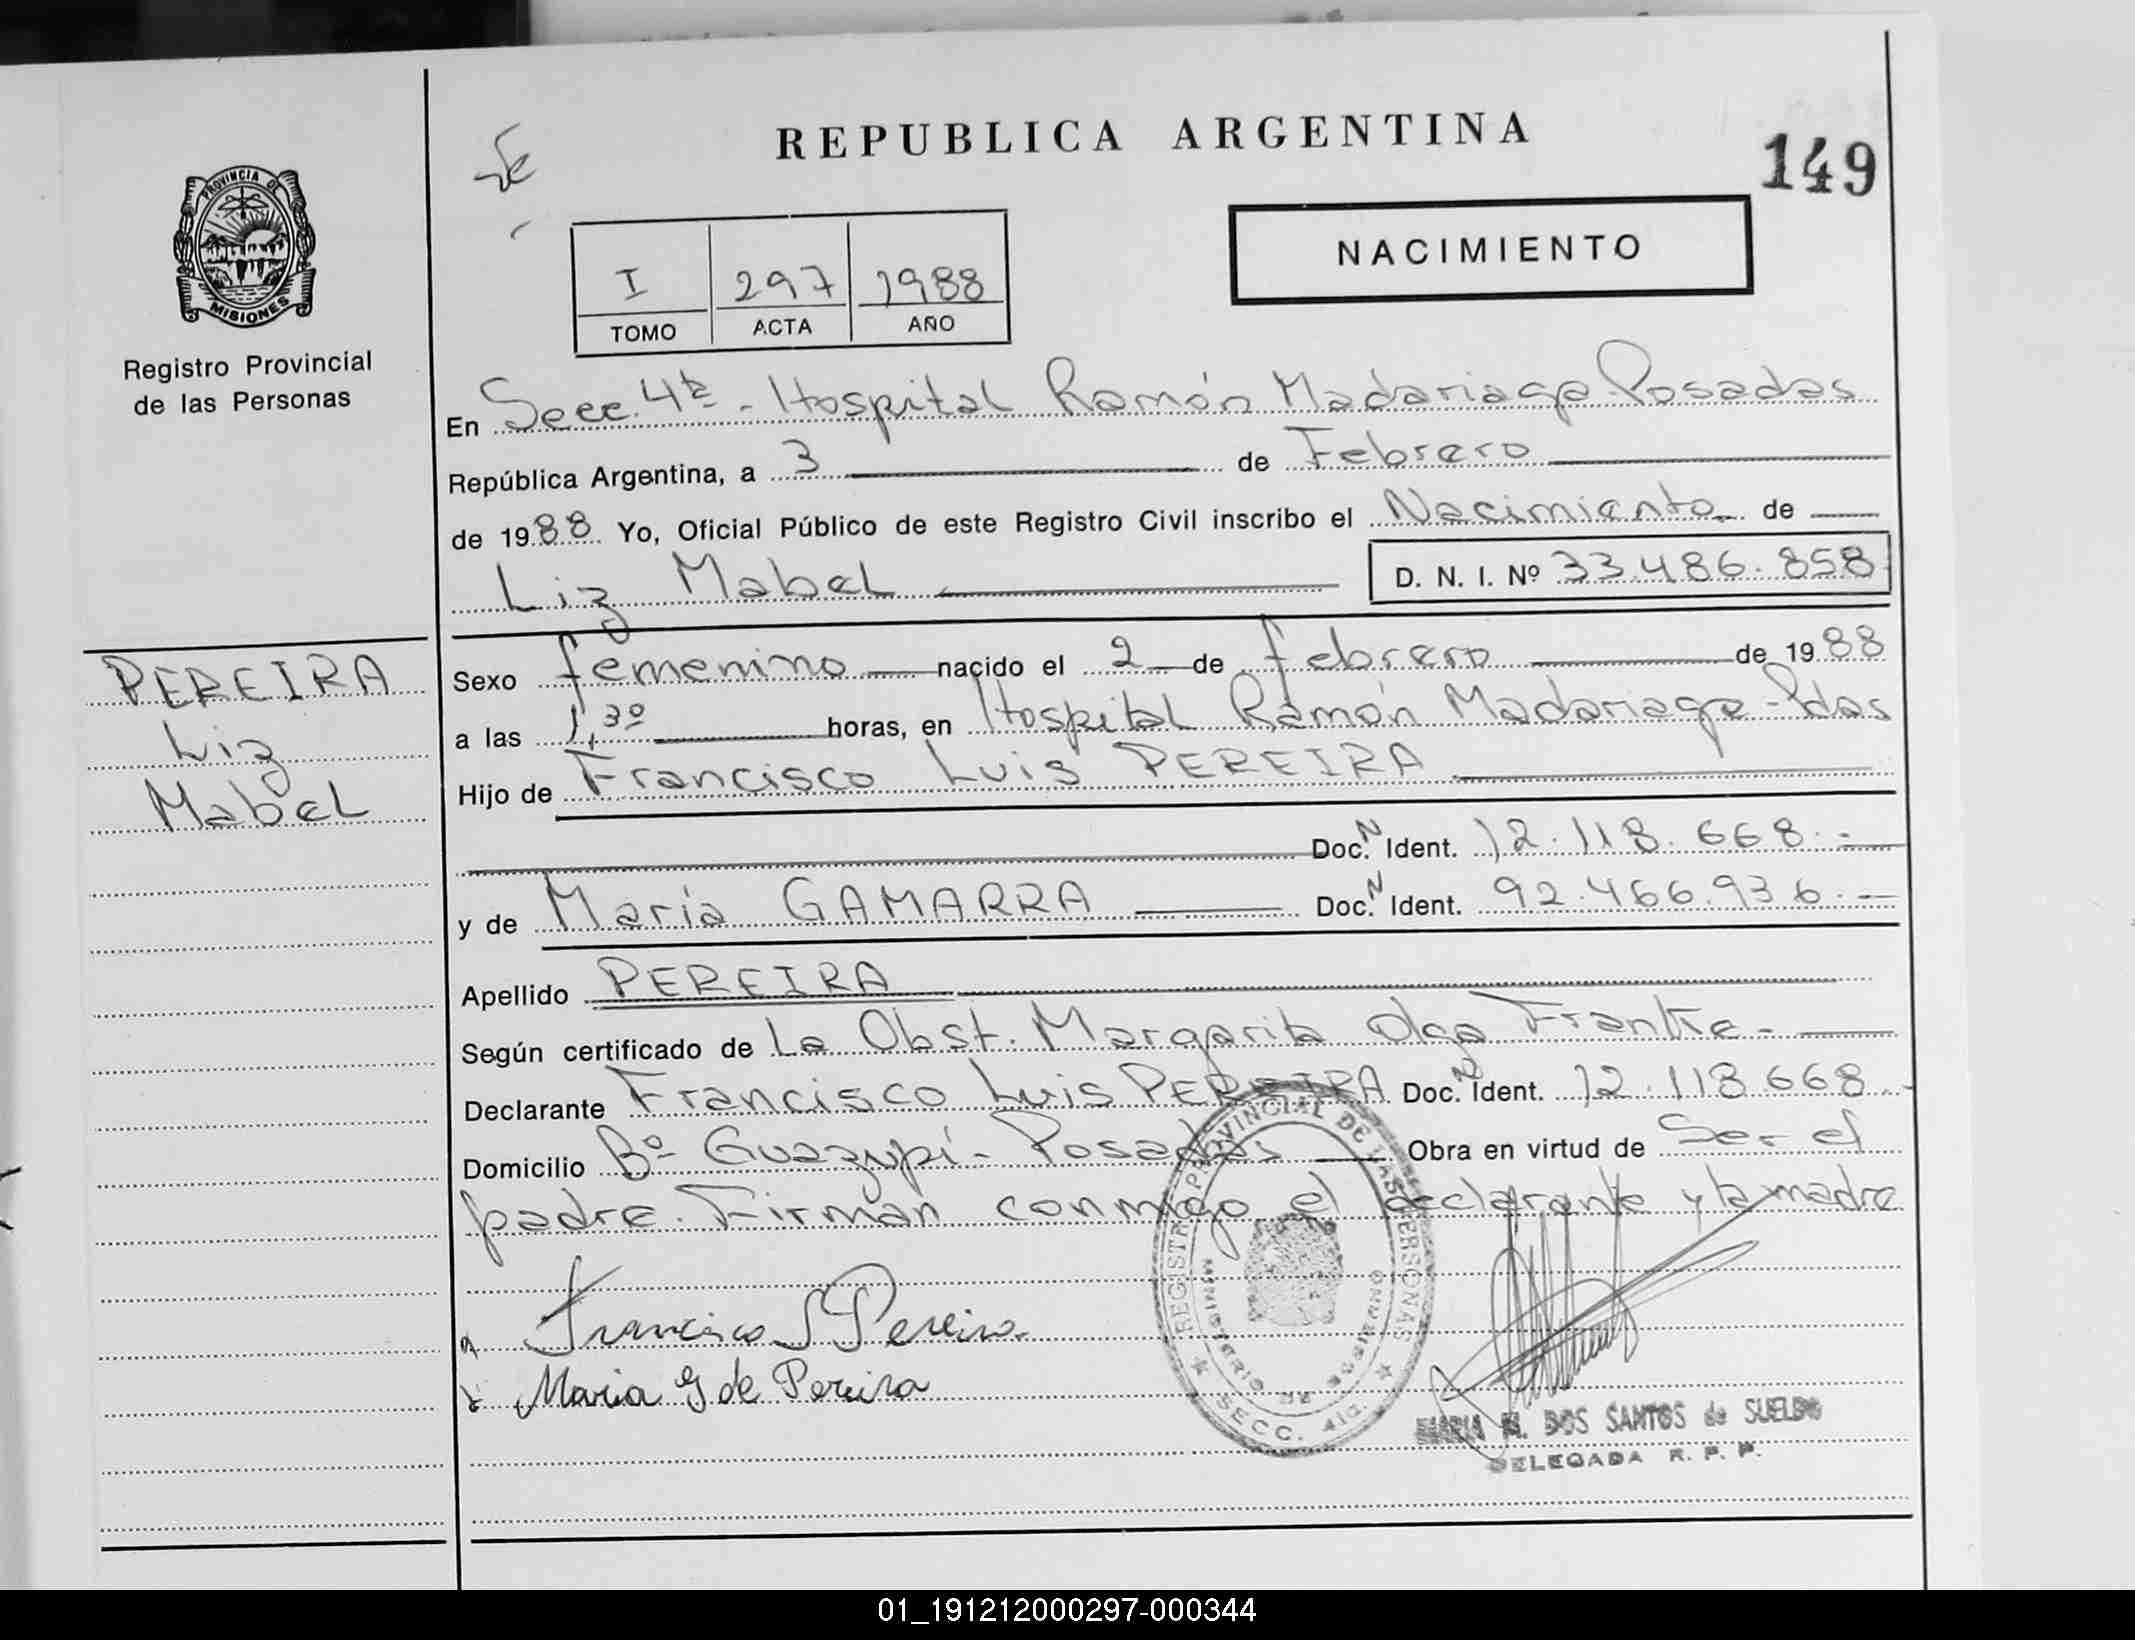 REPUBLICA ARGENTINA
149
PROVINCIA DE
MISIONES
Registro Provincial
de las Personas
I 297 1988
TOMO ACTA AÑO
NACIMIENTO
En Secc. 4ta - Hospital Ramón Madariaga Posadas
República Argentina, a 3 de Febrero
de 1988 Yo, Oficial Público de este Registro Civil inscribo el Nacimiento de
Liz Mabel D. N. I. Nº 33.486.858
PEREIRA
Liz
Mabel
Sexo femenino nacido el 2 de febrero de 1988
a las 1,30 horas, en Hospital Ramón Madariaga - Pdas
Hijo de Francisco Luis PEREIRA
Doc. N Ident. 12.118.668.-
y de María GAMARRA Doc. N Ident. 92.466.936.-
Apellido PEREIRA
Según certificado de La Obst. Margarita Olga Frantke -
Declarante Francisco Luis PEREIRA Doc. N Ident. 12.118.668.-
Domicilio Bº Guazupí - Posadas Obra en virtud de Ser el
padre. Firman conmigo el declarante y la madre
Francisco L Pereira
Maria G de Pereira
REGISTRO PROVINCIAL DE LAS PERSONAS
MINISTERIO DE GOBIERNO
SECC. 4ta.
MARIA M. DOS SANTOS de SUELDO
DELEGADA R. P. P.
01_191212000297-000344